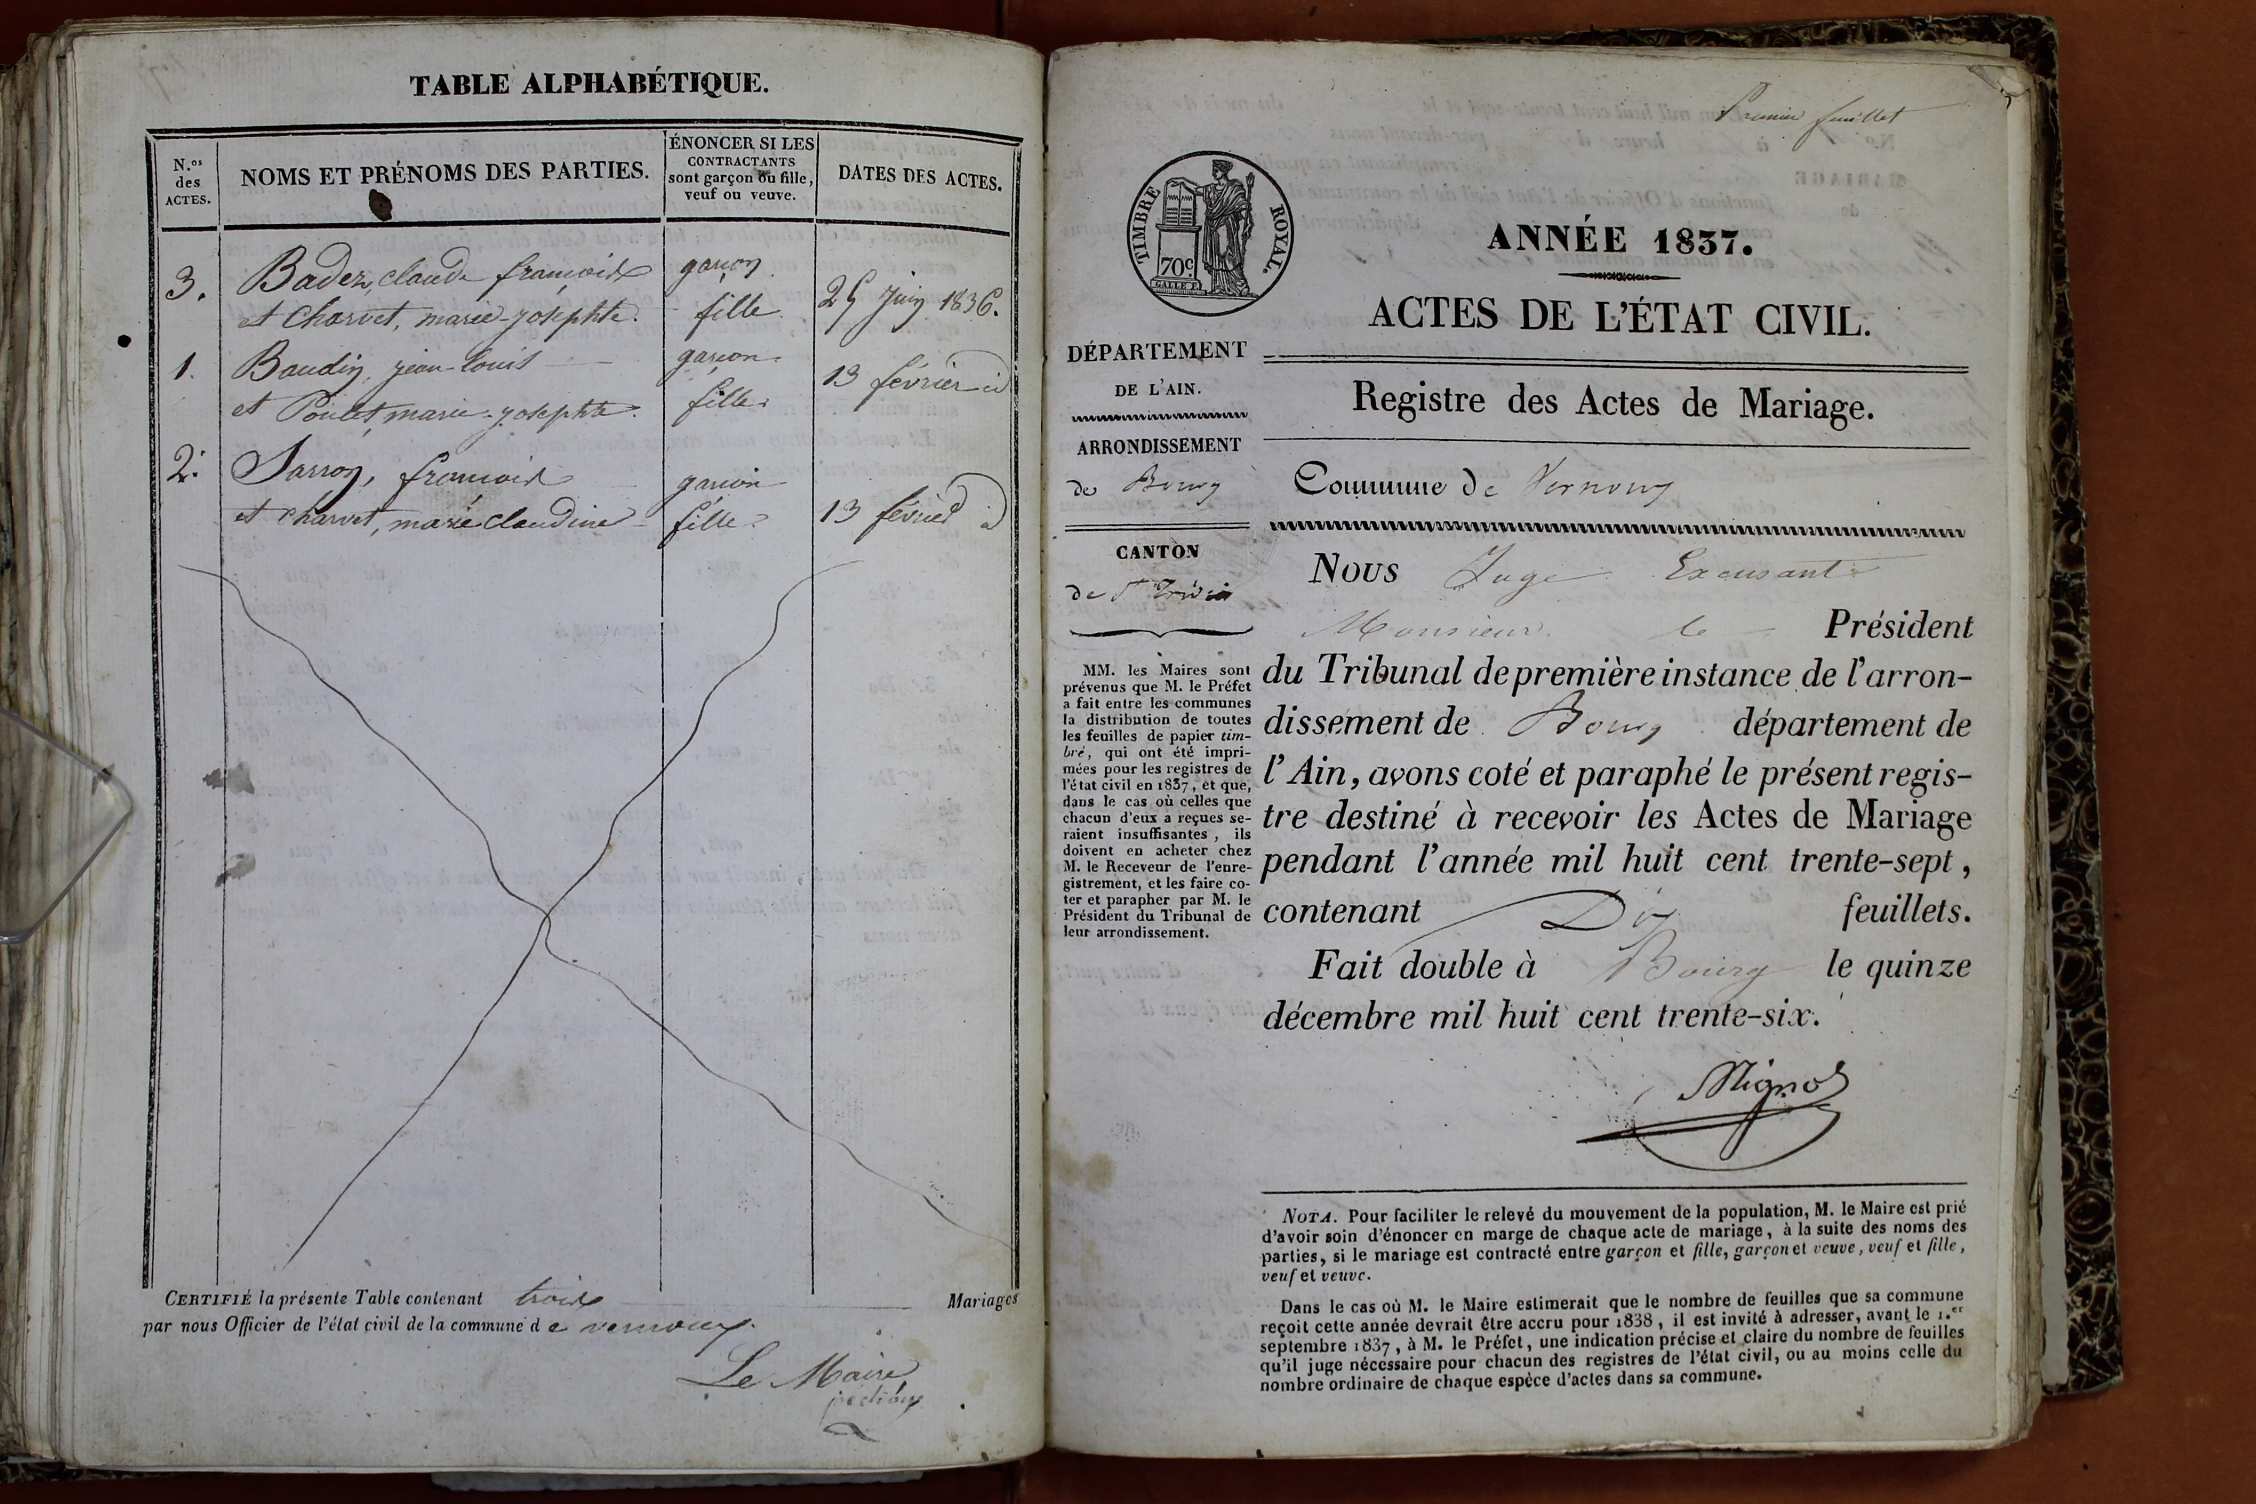 TABLE ALPHABÉTIQUE.
N.os des ACTES.
NOMS ET PRÉNOMS DES PARTIES.
ÉNONCER SI LES
CONTRACTANTS
sont garçon ou fille,
veuf ou veuve.
DATES DES ACTES.
3. Badez, claude françois garçon
et Charvet, marie-josephte. fille 25 juin 1836.
1. Baudin, jean-louis garçon
et Poulet, marie-josephte. fille 13 février id
2. Sarron, françois garçon
et charvet, marie claudine fille 13 février id
CERTIFIÉ la présente Table contenant trois Mariages
par nous Officier de l'état civil de la commune de vernoux.
Le Maire
Premier feuillet
TIMBRE ROYAL.
70c
ANNÉE 1837.
ACTES DE L'ÉTAT CIVIL.
Registre des Actes de Mariage.
DÉPARTEMENT
DE L'AIN.
ARRONDISSEMENT
de Bourg
CANTON
de St Trivier
MM. les Maires sont
prévenus que M. le Préfet
a fait entre les communes
la distribution de toutes
les feuilles de papier tim-
bré, qui ont été impri-
mées pour les registres de
l'état civil en 1837, et que,
dans le cas où celles que
chacun d'eux a reçues se-
raient insuffisantes, ils
doivent en acheter chez
M. le Receveur de l'enre-
gistrement, et les faire co-
ter et parapher par M. le
Président du Tribunal de
leur arrondissement.
Commune de Vernoux
Nous Juge Excusant
Monsieur le Président
du Tribunal de première instance de l'arron-
dissement de Bourg département de
l'Ain, avons coté et paraphé le présent regis-
tre destiné à recevoir les Actes de Mariage
pendant l'année mil huit cent trente-sept,
contenant Dix feuillets.
Fait double à Bourg le quinze
décembre mil huit cent trente-six.
Mignot
NOTA. Pour faciliter le relevé du mouvement de la population, M. le Maire est prié
d'avoir soin d'énoncer en marge de chaque acte de mariage, à la suite des noms des
parties, si le mariage est contracté entre garçon et fille, garçon et veuve, veuf et fille,
veuf et veuve.
Dans le cas où M. le Maire estimerait que le nombre de feuilles que sa commune
reçoit cette année devrait être accru pour 1838, il est invité à adresser, avant le 1.er
septembre 1837, à M. le Préfet, une indication précise et claire du nombre de feuilles
qu'il juge nécessaire pour chacun des registres de l'état civil, ou au moins celle du
nombre ordinaire de chaque espèce d'actes dans sa commune.